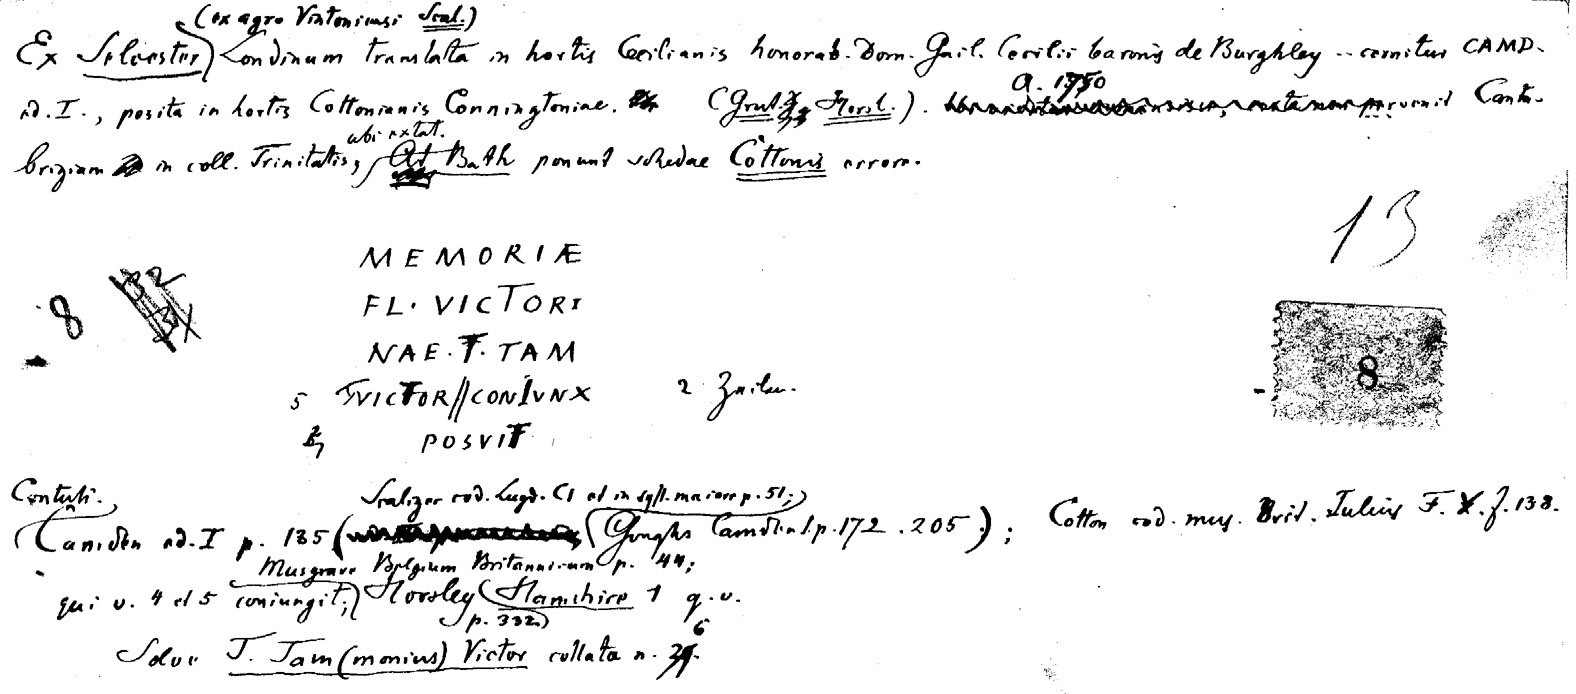 (ex agro Vintoniensi Scal.)
Ex Selcester Londinum translata in hortis Cecilianis honorab. Dom. Guil. Cecilii baronis de Burghley -- cernitur CAMD.
ed. I., posita in hortis Cottonianis Conningtoniae. (Grut. Horsl.). a. 1750 pervenit Canta-
brigiam in coll. Trinitatis, ubi extat. At Bath ponunt schedae Cottonis errore.
13
MEMORIÆ
FL. VICTORI
NAE. T. TAM
5 VICTOR//CONIVNX 2 Zeilen.
POSVIT
8
8
Contuli.
Scaliger cod. Lugd. CI et in syll. maiore p. 51;
Camden ed. I p. 135 (Goughs Camden I. p. 172. 205); Cotton cod. mus. Brit. Iulius F. X. f. 138.
Musgrave Belgium Britannicum p. 44;
qui v. 4 et 5 coniungit; Horsley (Hamshire 1 q. v.
p. 332)
Solve T. Tam(monius) Victor collata n. 6